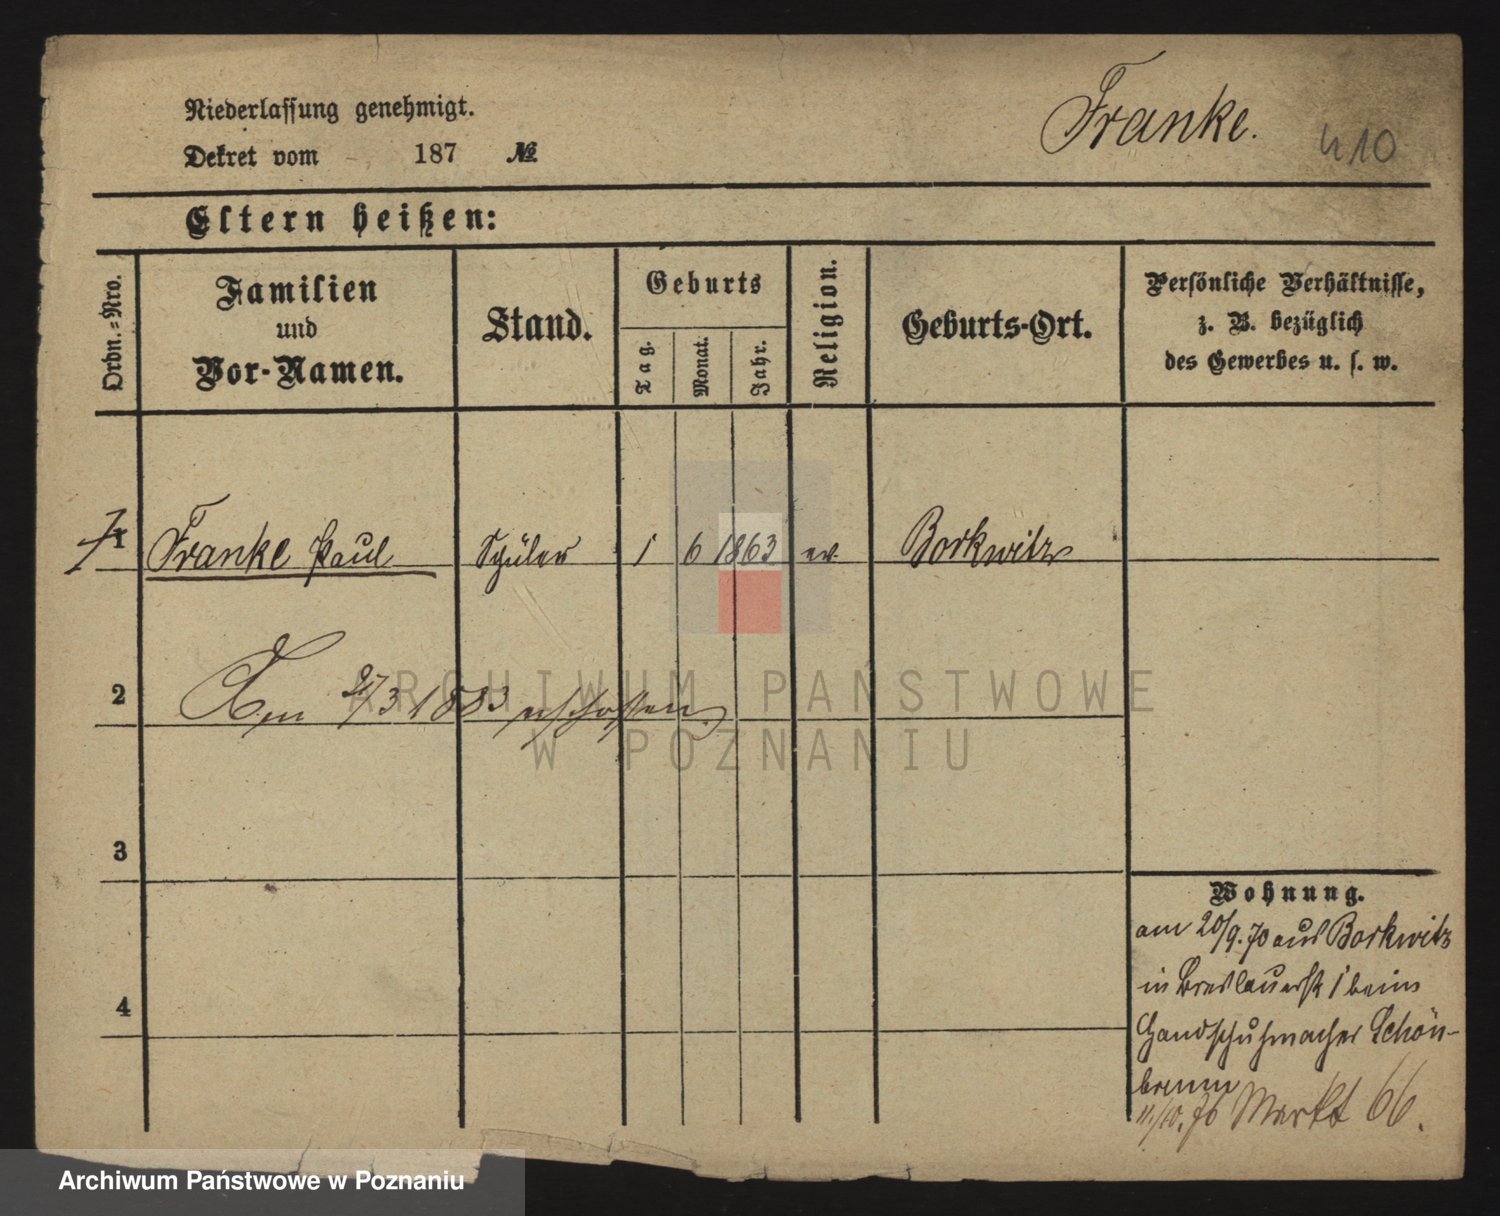 Niederlassung genehmigt.
Franke.
410
Dekret vom 187 №
Eltern heißen:
Ordn.-Nro.
Familien
und
Vor-Namen.
Stand.
Geburts
Tag.
Monat.
Jahr.
Religion.
Geburts-Ort.
Persönliche Verhältnisse,
z. B. bezüglich
des Gewerbes u. s. w.
1 Franke Paul Schüler 1 6 1863 ev Borkwitz
2 Am 27/3 1883 erschossen.
3
4
Wohnung.
am 20/9.70 aus Borkwitz
in Breslauerstr 1 beim
Handschuhmacher Schön-
brunn
11/10.76 Markt 66.
ARCHIWUM PAŃSTWOWE
W POZNANIU
Archiwum Państwowe w Poznaniu